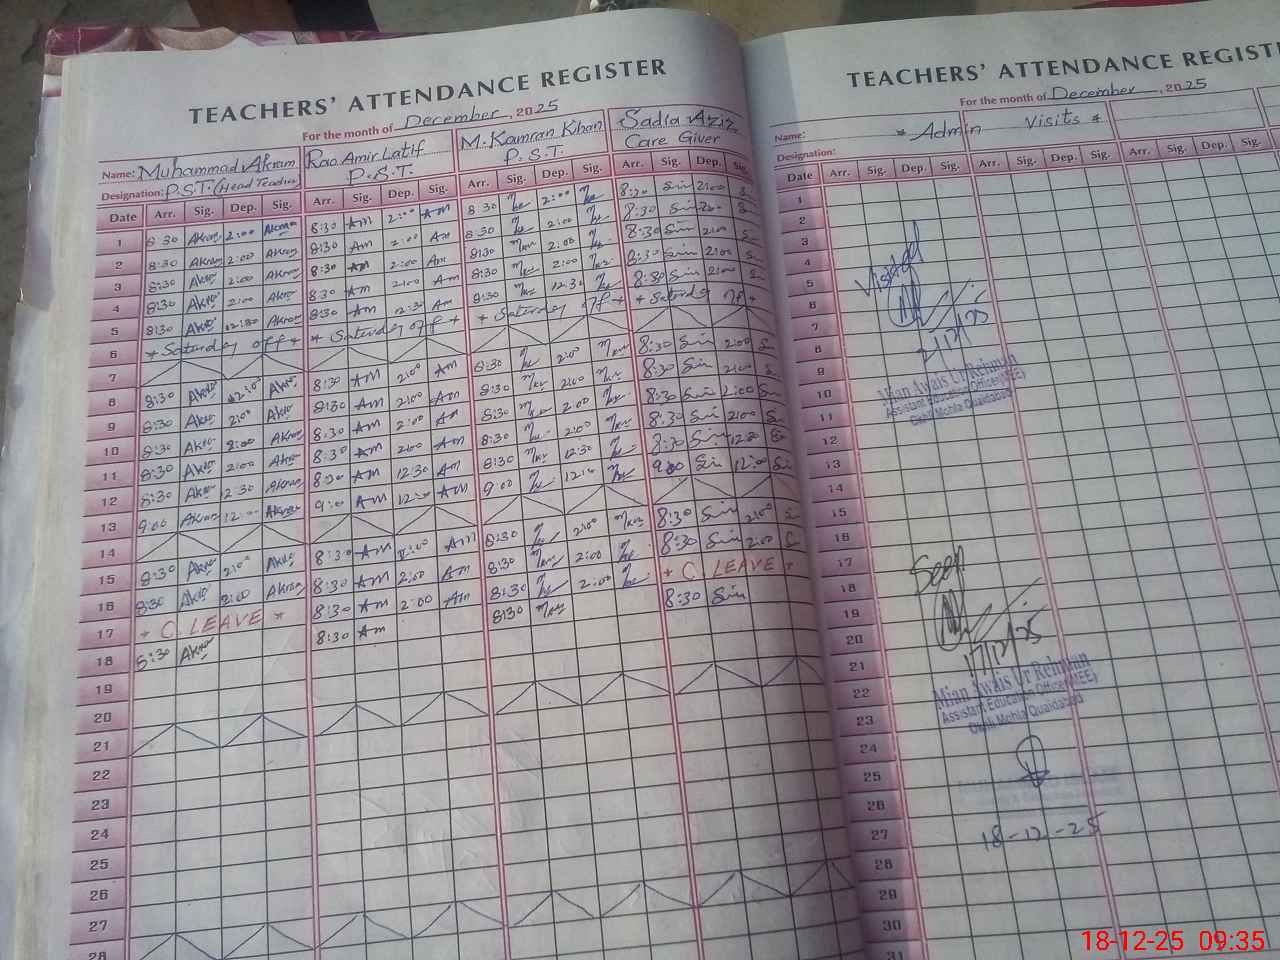 TEACHERS' ATTENDANCE REGISTER
For the month of December, 2025
Name: Muhammad Akram Rao Amir Latif M. Kamran Khan Sadia Aziz
Designation: P.S.T (Head Teacher P.S.T. P.S.T. Care Giver
Date Arr. Sig. Dep. Sig. Arr. Sig. Dep. Sig. Arr. Sig. Dep. Sig. Arr. Sig. Dep. Sig.
1 8:30 Akram 2:00 Akram 8:30 AM 2:00 AM 8:30 2:00 8:30 Sin 2:00
2 8:30 Akram 2:00 Akram 8:30 AM 2:00 AM 8:30 2:00 8:30 Sin 2:00
3 8:30 Akram 2:00 Akram 8:30 AM 2:00 AM 8:30 2:00 8:30 Sin 2:00
4 8:30 Akram 2:00 Akram 8:30 AM 2:00 AM 8:30 2:00 8:30 Sin 2:00
5 8:30 Akram 12:30 Akram 8:30 AM 12:30 AM 8:30 12:30 8:30 Sin
6 * Saturday off * * Saturday off * * Saturday off * * Saturday off *
7
8 8:30 Akram 2:00 Akram 8:30 AM 2:00 AM 8:30 2:00 8:30 Sin 2:00
9 8:30 Akram 2:00 Akram 8:30 AM 2:00 AM 8:30 2:00 8:30 Sin 2:00
10 8:30 Akram 2:00 Akram 8:30 AM 2:00 AM 8:30 2:00 8:30 Sin 2:00
11 8:30 Akram 2:00 Akram 8:30 AM 2:00 AM 8:30 2:00 8:30 Sin 2:00
12 8:30 Akram 12:30 Akram 8:30 AM 12:30 AM 8:30 12:30 8:30 Sin 12:30
13 9:00 Akram 12:00 Akram 9:00 AM 12:00 AM 9:00 9:00 Sin 12:00
14
15 8:30 Akram 2:00 Akram 8:30 AM 2:00 AM 8:30 2:00 8:30 Sin 2:00
16 8:30 Akram 2:00 Akram 8:30 AM 2:00 AM 8:30 2:00 8:30 Sin 2:00
17 * C. LEAVE * 8:30 AM 2:00 AM 8:30 2:00 * C. LEAVE *
18 8:30 Akram 8:30 AM 8:30 8:30 Sin
19
20
21
22
23
24
25
26
27
28
TEACHERS' ATTENDANCE REGISTE
For the month of December, 2025
Name: * Admin Visits *
Designation:
Date Arr. Sig. Dep. Sig. Arr. Sig. Dep. Sig. Arr. Sig.
1
2
3
4
5
6
7
8
9
10
11
12
13
14
15
16
17
18
19
20
21
22
23
24
25
26
27
28
29
30
31
Visited
2/12/25
Mian Awais Ur Rehman
Assistant Education Officer (MEE)
Okhli Mohla Quaidabad
Seen
17/12/25
Mian Awais Ur Rehman
Assistant Education Officer (MEE)
Okhli Mohla Quaidabad
18-12-25
18-12-25 09:35